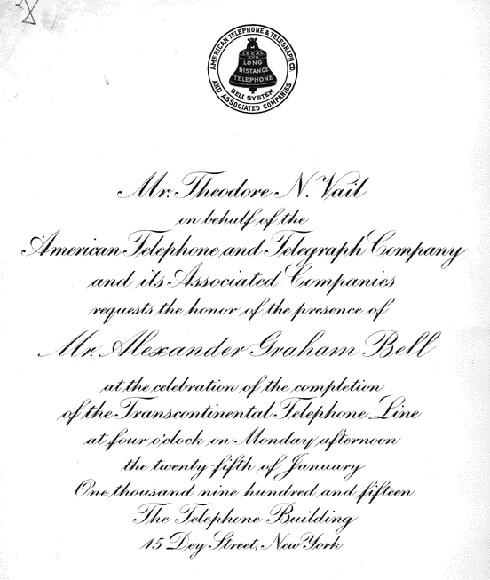 AMERICAN TELEPHONE & TELEGRAPH CO.
AND ASSOCIATED COMPANIES
LOCAL
AND
LONG
DISTANCE
TELEPHONE
BELL SYSTEM
Mr. Theodore N. Vail
in behalf of the
American Telephone and Telegraph Company
and its Associated Companies
requests the honor of the presence of
Mr. Alexander Graham Bell
at the celebration of the completion
of the Transcontinental Telephone Line
at four o'clock on Monday afternoon
the twenty-fifth of January
One thousand nine hundred and fifteen
The Telephone Building
15 Dey Street, New York